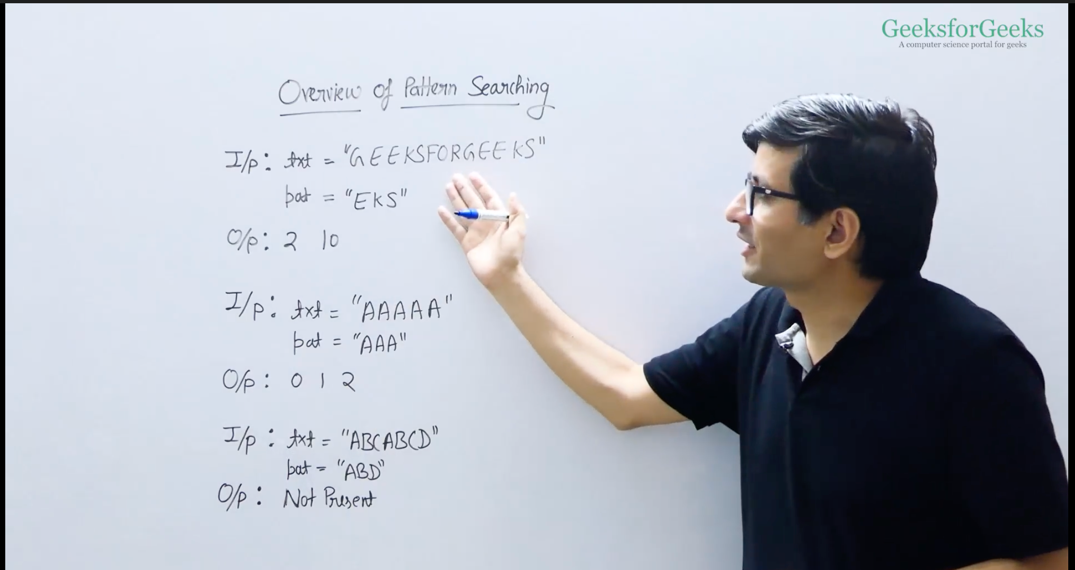 GeeksforGeeks
A computer science portal for geeks
Overview of Pattern Searching
I/p: txt = "GEEKSFORGEEKS"
pat = "EKS"
O/p: 2 10
I/p: txt = "AAAAA"
pat = "AAA"
O/p: 0 1 2
I/p: txt = "ABCABCD"
pat = "ABD"
O/p: Not Present